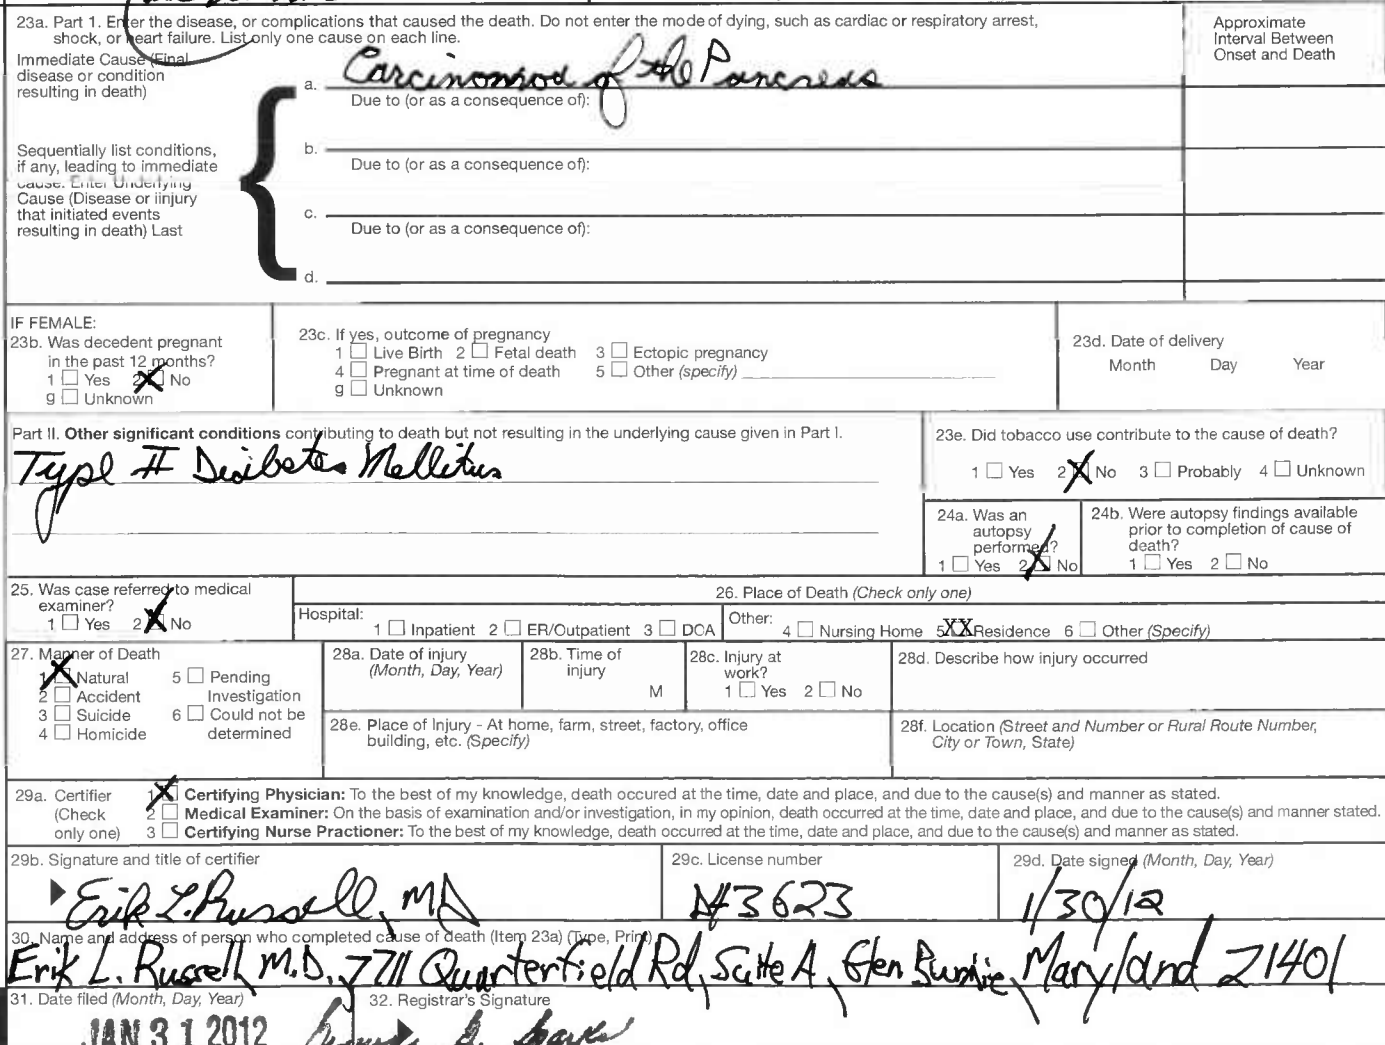 23a. Part 1. Enter the disease, or complications that caused the death. Do not enter the mode of dying, such as cardiac or respiratory arrest,
shock, or heart failure. List only one cause on each line.
Approximate
Interval Between
Onset and Death
Immediate Cause (Final
disease or condition
resulting in death)
a. Carcinomod of the Pancreas
Due to (or as a consequence of):
b.
Due to (or as a consequence of):
c.
Due to (or as a consequence of):
d.
Sequentially list conditions,
if any, leading to immediate
cause. Enter Underlying
Cause (Disease or iinjury
that initiated events
resulting in death) Last
IF FEMALE:
23b. Was decedent pregnant
in the past 12 months?
1 ☐ Yes 2 ☒ No
9 ☐ Unknown
23c. If yes, outcome of pregnancy
1 ☐ Live Birth 2 ☐ Fetal death 3 ☐ Ectopic pregnancy
4 ☐ Pregnant at time of death 5 ☐ Other (specify)
9 ☐ Unknown
23d. Date of delivery
Month Day Year
Part II. Other significant conditions contributing to death but not resulting in the underlying cause given in Part I.
Type II Diabetes Mellitus
23e. Did tobacco use contribute to the cause of death?
1 ☐ Yes 2 ☒ No 3 ☐ Probably 4 ☐ Unknown
24a. Was an
autopsy
performed?
1 ☐ Yes 2 ☒ No
24b. Were autopsy findings available
prior to completion of cause of
death?
1 ☐ Yes 2 ☐ No
25. Was case referred to medical
examiner?
1 ☐ Yes 2 ☒ No
26. Place of Death (Check only one)
Hospital:
1 ☐ Inpatient 2 ☐ ER/Outpatient 3 ☐ DOA
Other: 4 ☐ Nursing Home 5 XX Residence 6 ☐ Other (Specify)
27. Manner of Death
1 ☒ Natural 5 ☐ Pending
2 ☐ Accident Investigation
3 ☐ Suicide 6 ☐ Could not be
4 ☐ Homicide determined
28a. Date of injury
(Month, Day, Year)
28b. Time of
injury
M
28c. Injury at
work?
1 ☐ Yes 2 ☐ No
28d. Describe how injury occurred
28e. Place of Injury - At home, farm, street, factory, office
building, etc. (Specify)
28f. Location (Street and Number or Rural Route Number,
City or Town, State)
29a. Certifier
(Check
only one)
1 ☒ Certifying Physician: To the best of my knowledge, death occured at the time, date and place, and due to the cause(s) and manner as stated.
2 ☐ Medical Examiner: On the basis of examination and/or investigation, in my opinion, death occurred at the time, date and place, and due to the cause(s) and manner stated.
3 ☐ Certifying Nurse Practioner: To the best of my knowledge, death occurred at the time, date and place, and due to the cause(s) and manner as stated.
29b. Signature and title of certifier
Erik L. Russell, MD
29c. License number
29d. Date signed (Month, Day, Year)
1/30/12
30. Name and address of person who completed cause of death (Item 23a) (Type, Print)
Erik L. Russell, M.D., 7711 Quarterfield Rd, Suite A, Glen Burnie, Maryland 21401
31. Date filed (Month, Day, Year)
JAN 31 2012
32. Registrar's Signature